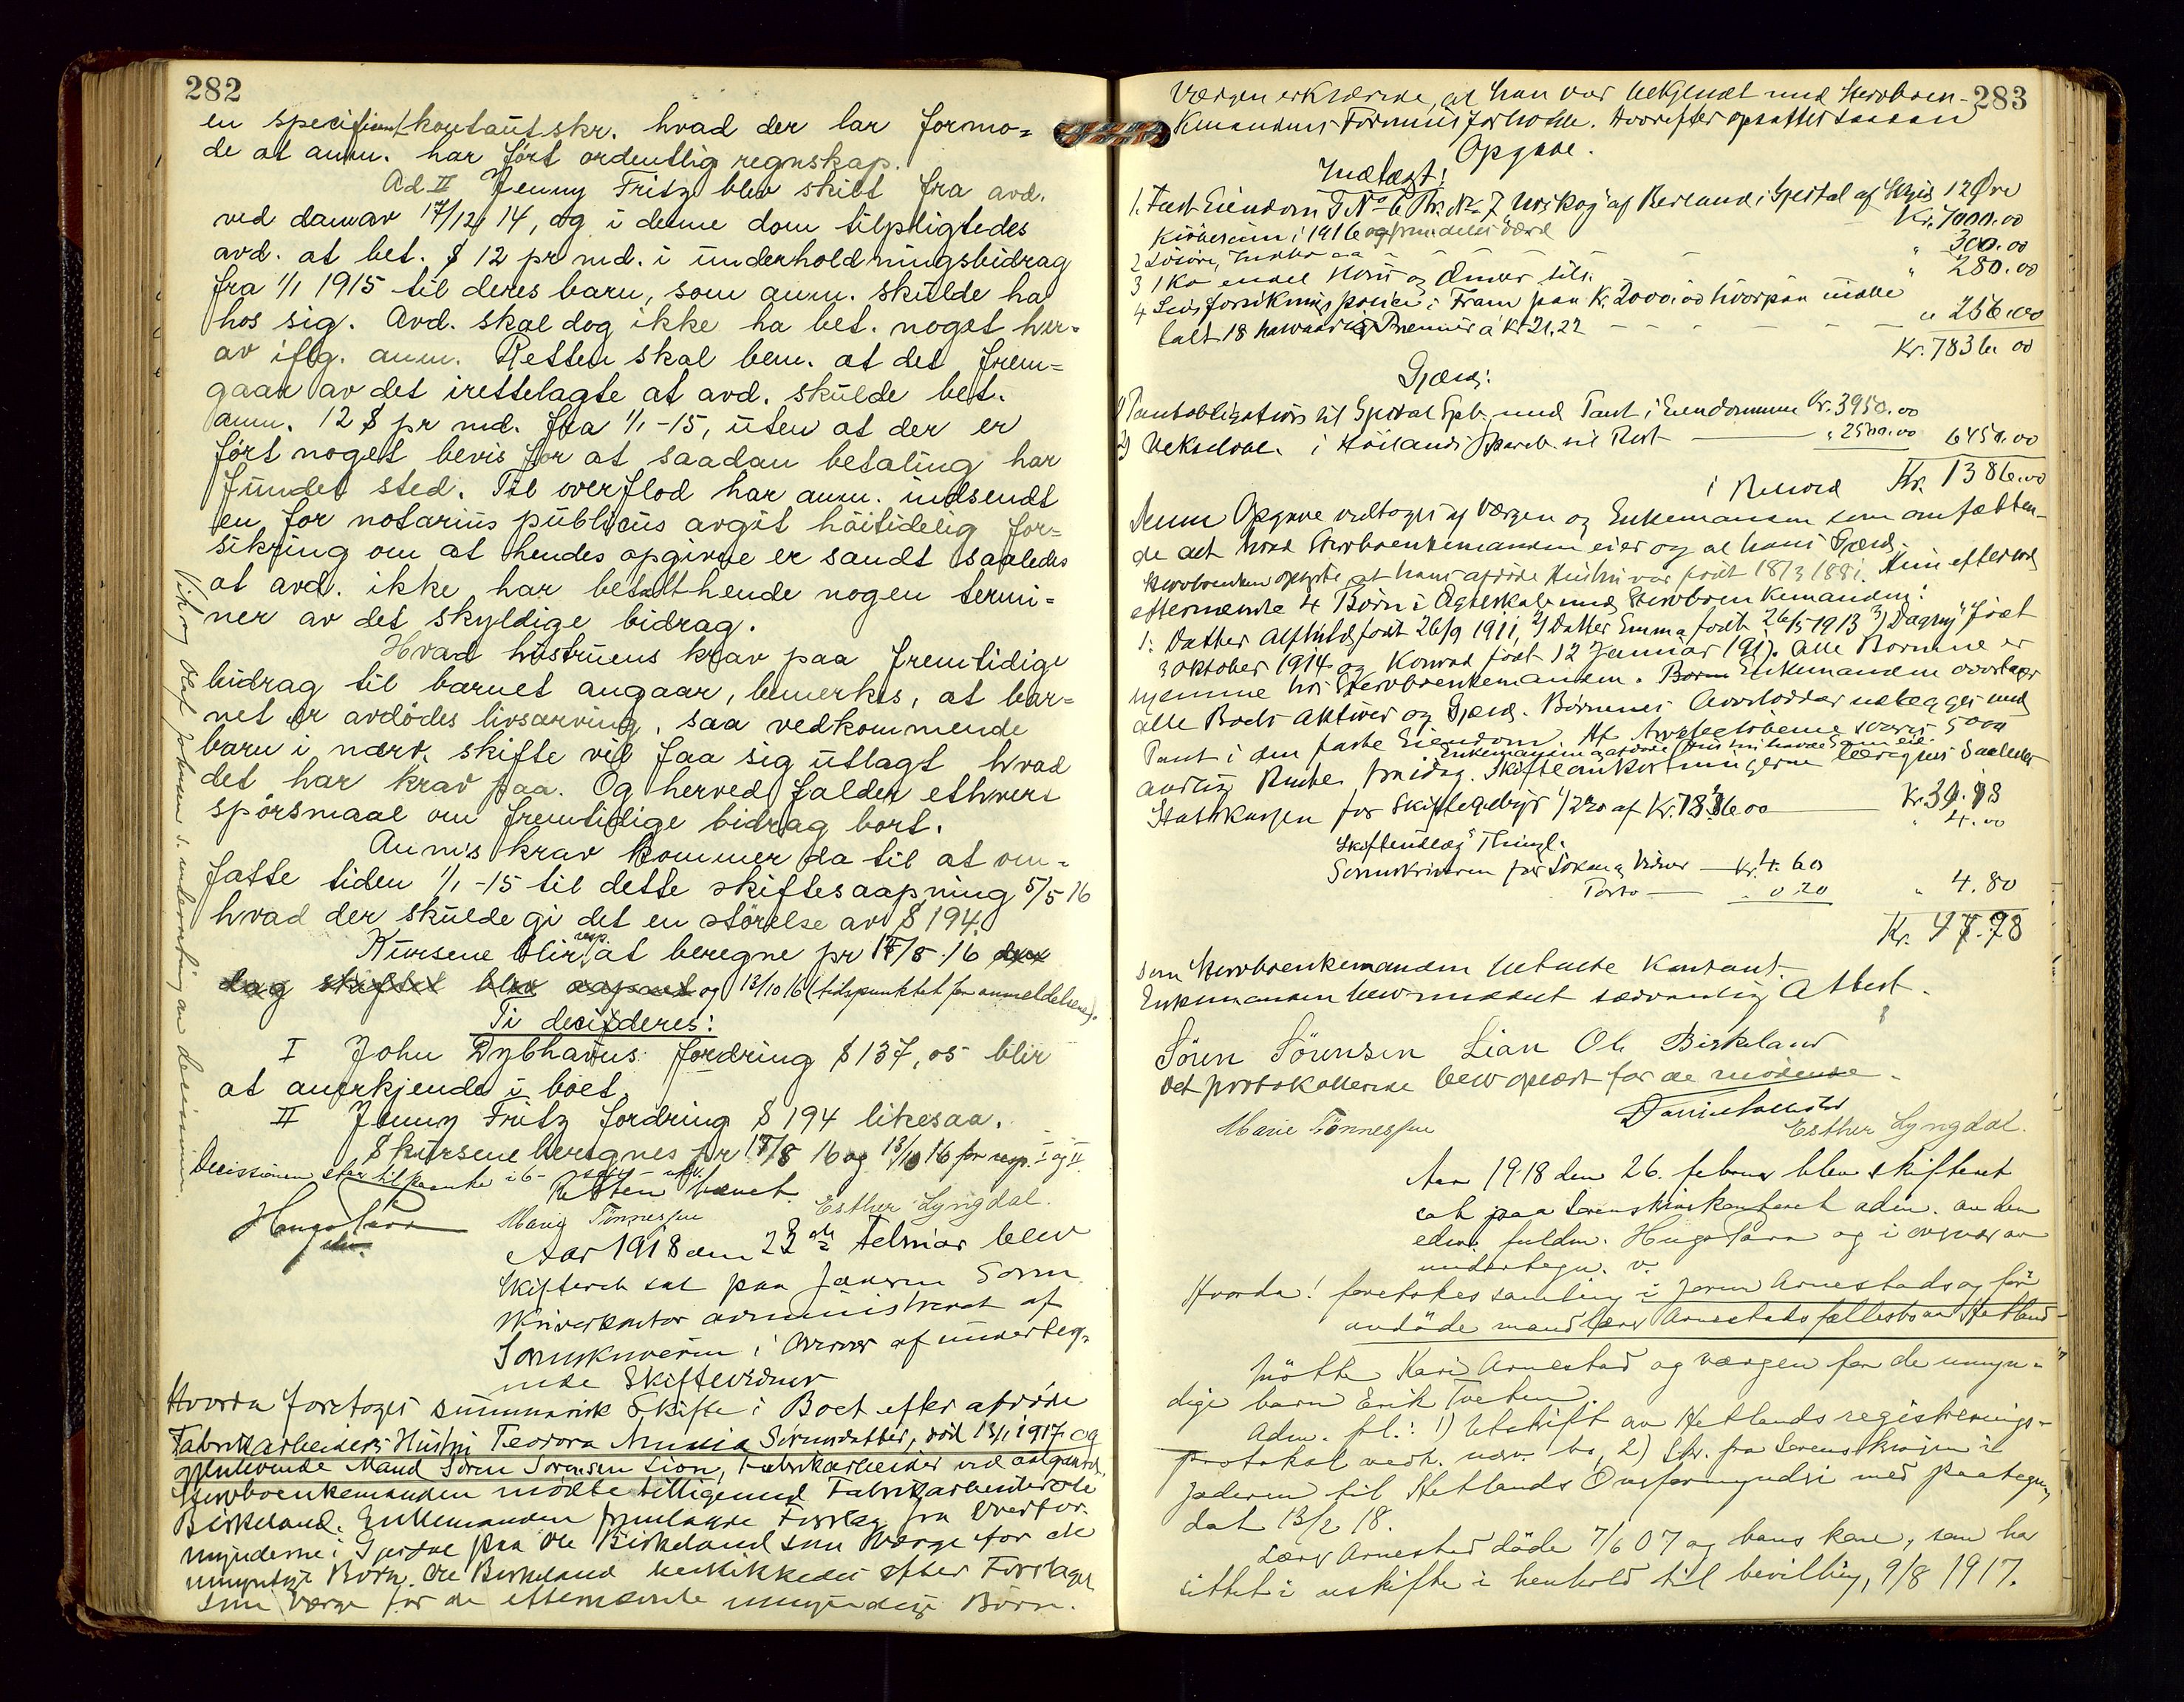 282
en specificert kontantskr. hvad der lar formo=
de at anm. har ført ordentlig regnskap.
Ad II Jenny Fritz blev skilt fra avd.
ved dom av 17/12 14, og i denne dom tilpligtedes
avd. at bet. $ 12 pr md. i underholdningsbidrag
fra 1/1 1915 til deres barn, som anm. skulde ha
hos sig. Avd. skal dog ikke ha bet. noget her=
av iflg. anm. Retten skal bem. at det frem=
gaar av det irettelagte at avd. skulde bet.
anm. 12 $ pr md. fra 1/1 -15, uten at der er
ført noget bevis for at saadan betaling har
fundet sted. Til overflod har anm. indsendt
en for notarius publicus avgit høitidelig for=
sikring om at hendes opgivne er sandt saaledes
at avd. ikke har betalt hende nogen termi=
ner av det skyldige bidrag.
Hvad hustruens krav paa fremtidige
bidrag til barnet angaar, bemerkes, at bar=
net er avdødes livsarving, saa vedkommende
barn i nærv. skifte vil faa sig utlagt hvad
det har krav paa. Og herved falder ethvert
spørsmaal om fremtidige bidrag bort.
Anm's krav kommer da til at om=
fatte tiden 1/1 -15 til dette skiftesaapning 5/5 16
hvad der skulde gi det en størelse av $ 194.
Kursene blir resp. at beregne pr 17/8 -16 den
dag skiftet blev aapnet og 13/10 16 (tidspunktet for anmeldelsene).
Ti decideres:
I John Dybhavns fordring $ 137,05 blir
at anerkjende i boet
II Jenny Fritz fordring $ 194 likesaa.
$kursene beregnes pr 17/8 16 og 13/10 16 for resp. I og II.
Decisionen sker tilkjende i 6-
Retten hævet.
Marie Tønnessen Esther Lyngdal.
Aar 1918 den 23de Februar blev
Skifteret sat paa Jæderens Soren
skriverkontor administreret af
Sorenskriveren i Overvær af underteg=
nede Skiftevidner
Hvorda foretoges summarisk Skifte i Boet efter afdøde
Fabrikarbeiders Hustru Teodora Sørensdatter, død 13/1 1917 og
gjenlevende Mand Søren Sørensen Lian, Fabrikarbeider ved
Stervboenkemanden mødte tilligemed Fabrikarbeider Ole
Birkeland. Enkemanden fremlagde Forslag fra Overfor-
mynderne i Gjesdal paa Ole Birkeland som Værge for de
umyndige Børn. Ole Birkeland beskikkedes efter Forslaget
som Værge for de efternævnte umyndige Børn.
283
Værgen erklærede, at han var bekjendt med Stervboen-
kemandens Formuesforholde. Hvorefter opsattes saadan
Opgave.
Indtægt:
1. Fast Eiendom G No 6 Br. No 7 af i Gjesdal af Skyld 12 Øre
Kjøbesum i 1916 Kr. 7000.00
2 Løsøre, Indbo - - - " 300.00
3 1 Ko - - " 280.00
4 Livsforsikringspolice i Fram paa Kr. 2000.00 hvorpaa indbe
talt 18 halvaarlige Premier a Kr 21.22 - - - " 256.00
Kr. 7836.00
Gjæld:
1) Pantobligation til Gjesdal Spb. med Pant i Eiendommen Kr. 3950.00
2) Vekselobl. i Høilands Spareb. til Rest " 2500.00 6450.00
i Behold Kr. 1386.00
Denne Opgave vedtoges af Værgen og Enkemanden som omfatten-
de alt hvad Stervboenkemanden eier og al hans Gjæld.
at hans afdøde Hustru var født 18/3 1881. Hun efterlod
efternævnte 4 Børn i Ægteskab med Stervboenkemanden:
1: Datter Alfhild født 26/9 1911, 2) Datter Emma født 26/5 1913 3) Dagny født
3 Oktober 1914 og Konrad født 12 Januar 191. Alle Børnene er
hjemme hos Stervboenkemanden. Enkemanden overtager
alle Boets Aktiver og Gjæld. Børnenes Arvelodder utlægges med
Pant i den faste Eiendom. Af Arvebeløbene svares 5%
aarlig Rente fra idag. Skifteomkostningerne beregnes saaledes
Statskassen for Skiftegebyr 1/2 % af Kr. 7836.00 Kr. 39.18
Skifteudlæg Thingl. " 4.00
Sorenskriveren for Protokol og Vidner Kr. 4.60
Porto " 0.20 " 4.80
Kr. 47.98
som Stervboenkemanden betalte kontant.
Enkemanden blev meddelt sædvanlig Attest.
Søren Sørensen Lian Ole Birkeland
Det protokollerede blev oplæst for de mødende.
Marie Tønnessen Esther Lyngdal.
Aar 1918 den 26. februar blev skifteret
sat paa Sorenskriverkontoret adm. av den
edsv. fuldm. Hugo og i overvær av
undertegn. v.
Hvorda! foretokes samling i Arnestads og før
avdøde mand Lars Arnestads fællesbo av Hetland
Møtte Kari Arnestad og værgen for de umyn-
dige barn Erik Tveten.
Adm. fl.: 1) Utskrift av Hetlands registrerings-
protokol vedk. nærv. bo, 2) Skr. fra Sorenskriveren i
Jæderen til Hetlands Overformynderi med paategning
dat 13/2 18.
Lars Arnestad døde 7/6 07 og hans kone, som har
sittet i uskifte i henhold til bevilling, 9/8 1917.